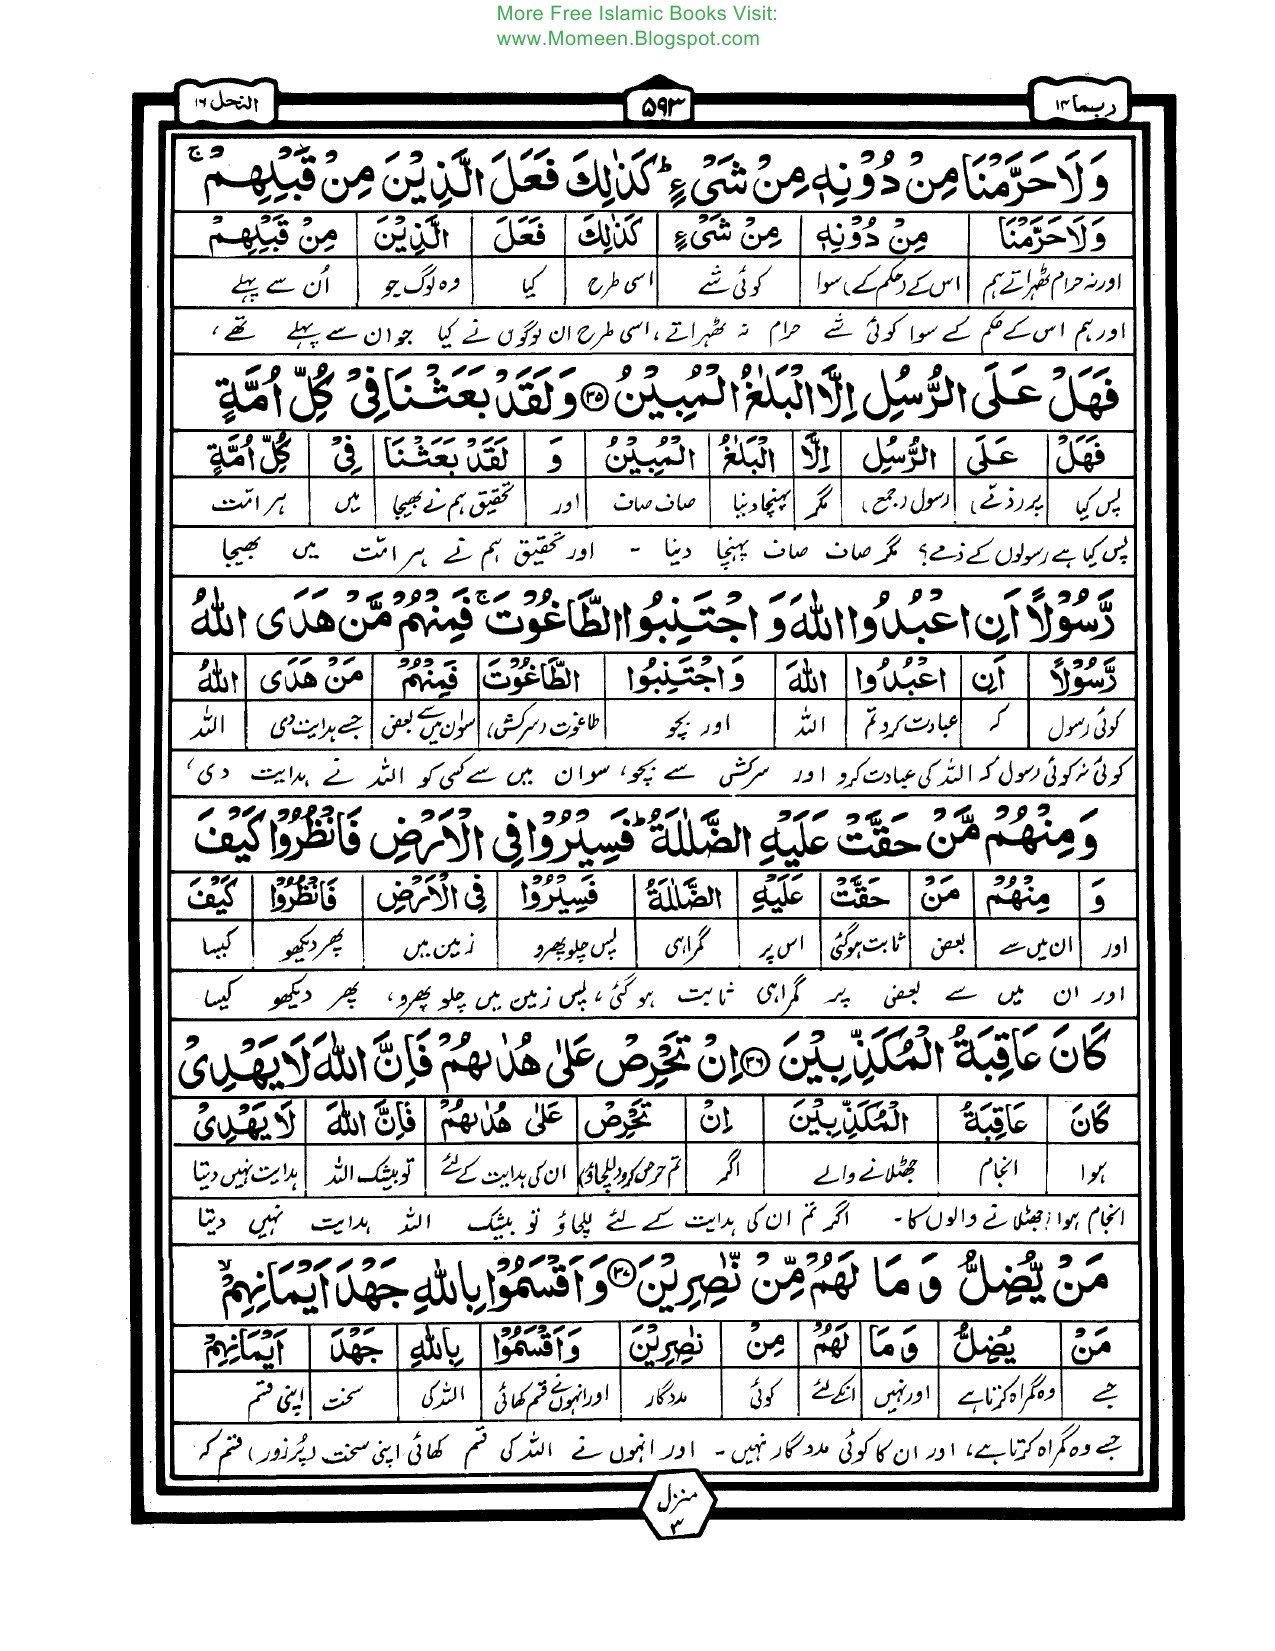 More Free Islamic Books Visit:
www.Momeen.Blogspot.com
ربما ۱۴ ۵۹۳ النحل ۱۶
وَلَا حَرَّمْنَا مِنْ دُوْنِهٖ مِنْ شَیْءٍ ؕ كَذٰلِكَ فَعَلَ الَّذِیْنَ مِنْ قَبْلِهِمْ ۚ
وَلَا حَرَّمْنَا مِنْ دُوْنِهٖ مِنْ شَیْءٍ كَذٰلِكَ فَعَلَ الَّذِیْنَ مِنْ قَبْلِهِمْ
اور نہ حرام ٹھہراتے ہم اس کے (حکم کے) سوا کوئی شے اسی طرح کیا وہ لوگ جو اُن سے پہلے
اور ہم اس کے حکم کے سوا کوئی شے حرام نہ ٹھہراتے، اسی طرح ان لوگوں نے کیا جو ان سے پہلے تھے،
فَهَلْ عَلَی الرُّسُلِ اِلَّا الْبَلٰغُ الْمُبِیْنُ ﴿۳۵﴾ وَلَقَدْ بَعَثْنَا فِیْ كُلِّ اُمَّةٍ
فَهَلْ عَلَی الرُّسُلِ اِلَّا الْبَلٰغُ الْمُبِیْنُ وَ لَقَدْ بَعَثْنَا فِیْ كُلِّ اُمَّةٍ
پس کیا پر (ذمے) رسول (جمع) مگر پہنچا دینا صاف صاف اور تحقیق ہم نے بھیجا میں ہر امّت
پس کیا ہے رسولوں کے ذمے؟ مگر صاف صاف پہنچا دینا ۔ اور تحقیق ہم نے ہر امّت میں بھیجا
رَّسُوْلًا اَنِ اعْبُدُوا اللّٰهَ وَ اجْتَنِبُوا الطَّاغُوْتَ ۚ فَمِنْهُمْ مَّنْ هَدَی اللّٰهُ
رَّسُوْلًا اَنِ اعْبُدُوا اللّٰهَ وَاجْتَنِبُوا الطَّاغُوْتَ فَمِنْهُمْ مَنْ هَدَی اللّٰهُ
کوئی رسول کہ عبادت کرو تم اللہ اور بچو طاغوت (سرکش) سو ان میں سے بعض جسے ہدایت دی اللہ
کوئی نہ کوئی رسول کہ اللہ کی عبادت کرو اور سرکش سے بچو، سو ان میں سے کسی کو اللہ نے ہدایت دی،
وَ مِنْهُمْ مَّنْ حَقَّتْ عَلَیْهِ الضَّلٰلَةُ ؕ فَسِیْرُوْا فِی الْاَرْضِ فَانْظُرُوْا كَیْفَ
وَ مِنْهُمْ مَنْ حَقَّتْ عَلَیْهِ الضَّلٰلَةُ فَسِیْرُوْا فِی الْاَرْضِ فَانْظُرُوْا كَیْفَ
اور ان میں سے بعض ثابت ہوگئی اس پر گمراہی پس چلو پھرو زمین میں پھر دیکھو کیسا
اور ان میں سے بعض پر گمراہی ثابت ہو گئی، پس زمین میں چلو پھرو، پھر دیکھو کیسا
كَانَ عَاقِبَةُ الْمُكَذِّبِیْنَ ﴿۳۶﴾ اِنْ تَحْرِصْ عَلٰی هُدٰىهُمْ فَاِنَّ اللّٰهَ لَا یَهْدِیْ
كَانَ عَاقِبَةُ الْمُكَذِّبِیْنَ اِنْ تَحْرِصْ عَلٰی هُدٰىهُمْ فَاِنَّ اللّٰهَ لَا یَهْدِیْ
ہوا انجام جھٹلانے والے اگر تم حرص کرو (للچاؤ) ان کی ہدایت کے لئے تو بیشک اللہ ہدایت نہیں دیتا
انجام ہوا جھٹلانے والوں کا۔ اگر تم ان کی ہدایت کے لئے للچاؤ تو بیشک اللہ ہدایت نہیں دیتا
مَنْ یُّضِلُّ وَ مَا لَهُمْ مِّنْ نّٰصِرِیْنَ ﴿۳۷﴾ وَ اَقْسَمُوْا بِاللّٰهِ جَهْدَ اَیْمَانِهِمْ ۙ
مَنْ یُضِلُّ وَ مَا لَهُمْ مِنْ نٰصِرِیْنَ وَ اَقْسَمُوْا بِاللّٰهِ جَهْدَ اَیْمَانِهِمْ
جسے وہ گمراہ کرتا ہے اور نہیں انکے لئے کوئی مددگار اور انہوں نے قسم کھائی اللہ کی سخت اپنی قسم
جسے وہ گمراہ کرتا ہے، اور ان کا کوئی مددگار نہیں ۔ اور انہوں نے اللہ کی قسم کھائی اپنی سخت (پُرزور) قسم کہ
منزل ۳